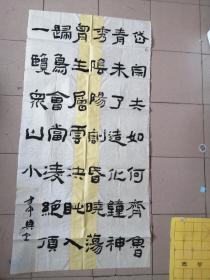 岱宗夫如何齊魯
青未了造化鐘神
秀陰陽割昏曉蕩
胷生層雲決眥入
歸鳥會當凌絕頂
一覽眾山小